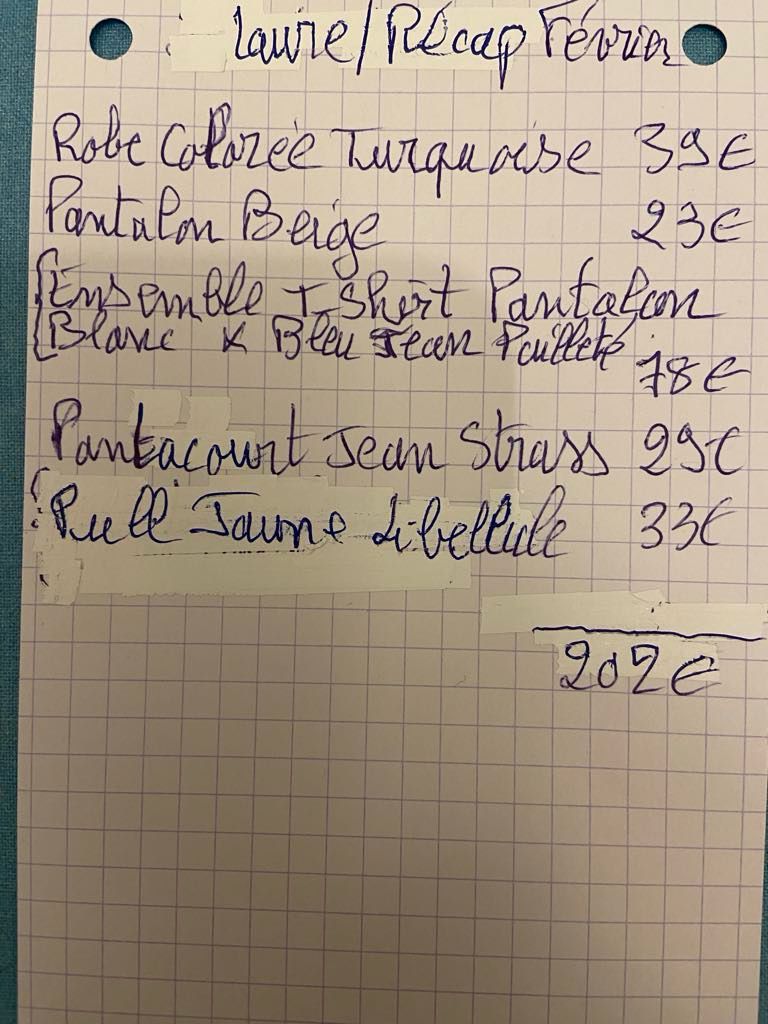 Laure/Récap Février
Robe Colorée Turquoise 39€
Pantalon Beige 23€
Ensemble T-Shirt Pantalon
Blanc & Bleu Jean Pailleté
78€
Pantacourt Jean Strass 29€
Pull Jaune Libellule 33€
202€